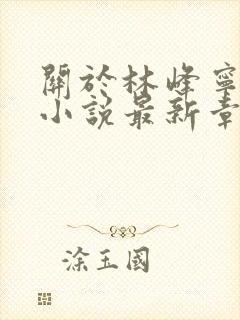 關於林峰寧
小說最新章
涂玉國